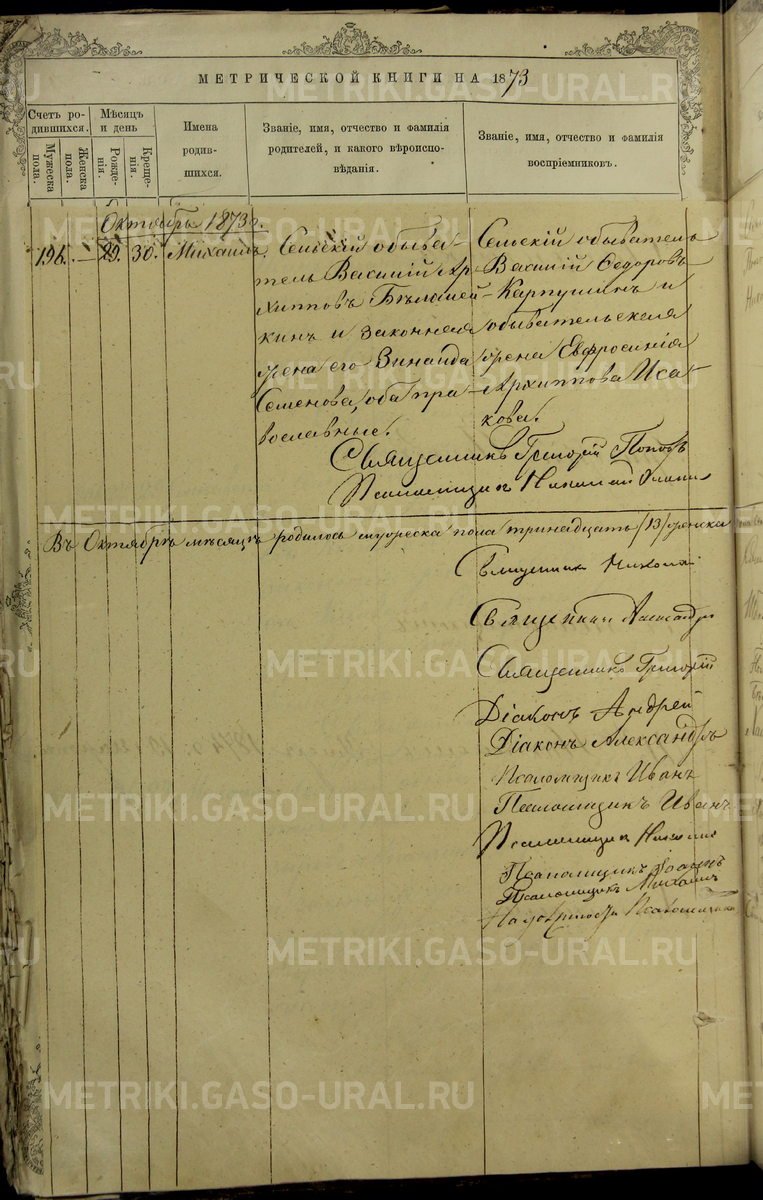 МЕТРИЧЕСКОЙ КНИГИ НА 1873
Счетъ ро-
дившихся.
Мужеска
пола.
Женска
пола.
Мѣсяцъ
и день
Рожде-
нія.
Креще-
нія.
Имена
родив-
шихся.
Званіе, имя, отчество и фамилія
родителей, и какого вѣроиспо-
вѣданія.
Званіе, имя, отчество и фамилія
воспріемниковъ.
Октябрь 1873г.
196. — 29. 30. Михаилъ.
Сельскій обыва-
тель Василій Ар-
хипповъ Бѣлошей-
кинъ и законная
жена его Зинаида
Семенова, оба пра-
вославные.
Сельскій обыватель
Василій Ѳедоровъ
Карпушинъ и
обывательская
жена Евфросинія
Архиппова Иса-
кова.
Священникъ Григорій Поповъ
Псаломщикъ Николай
Въ Октябрѣ мѣсяцѣ родилось мужеска пола тринадцать /13/ женска
Священникъ Николай
Священникъ Александръ
Священникъ Григорій
Діаконъ Андрей
Діаконъ Александръ
Псаломщикъ Иванъ
Псаломщикъ Иванъ
Псаломщикъ Николай
Псаломщикъ Іоаннъ
Псаломщикъ Михаилъ
METRIKI.GASO-URAL.RU